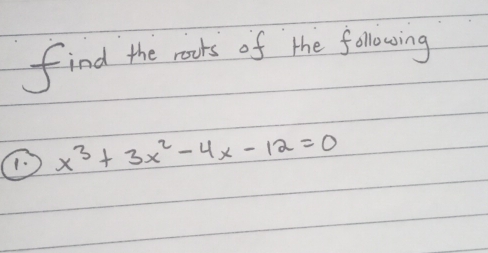 find the roots of the following
1. x³ + 3x² - 4x - 12 = 0